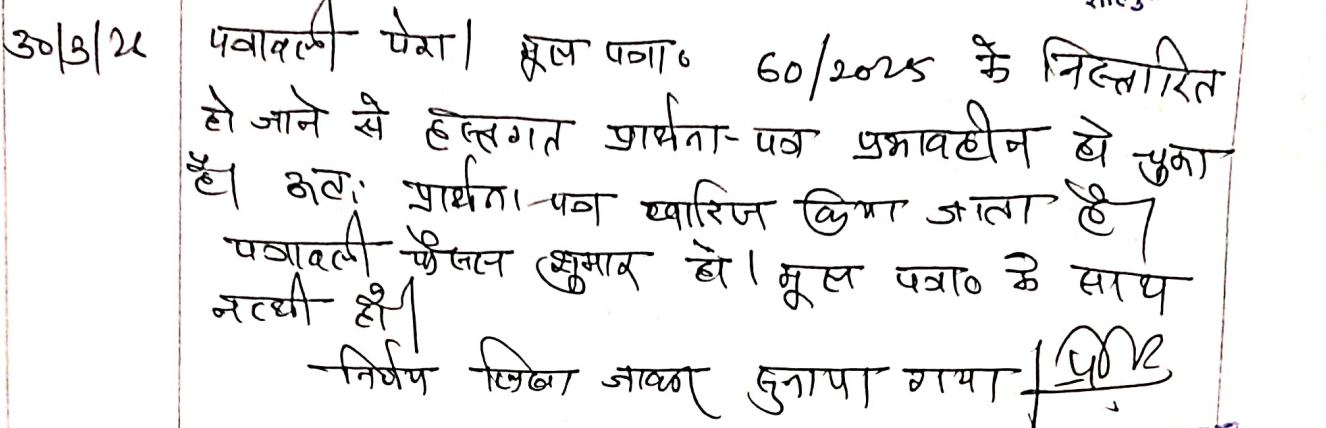 30/3/26 पत्रावली पेश। मूल पत्रा० 60/2025 के निस्तारित
हो जाने से हस्तगत प्रार्थना-पत्र प्रभावहीन हो चुका
है। अतः प्रार्थना पत्र खारिज किया जाता है।
पत्रावली फैसल शुमार हो। मूल पत्रा० के साथ
नत्थी हो।
निर्णय लिखा जाकर सुनाया गया।